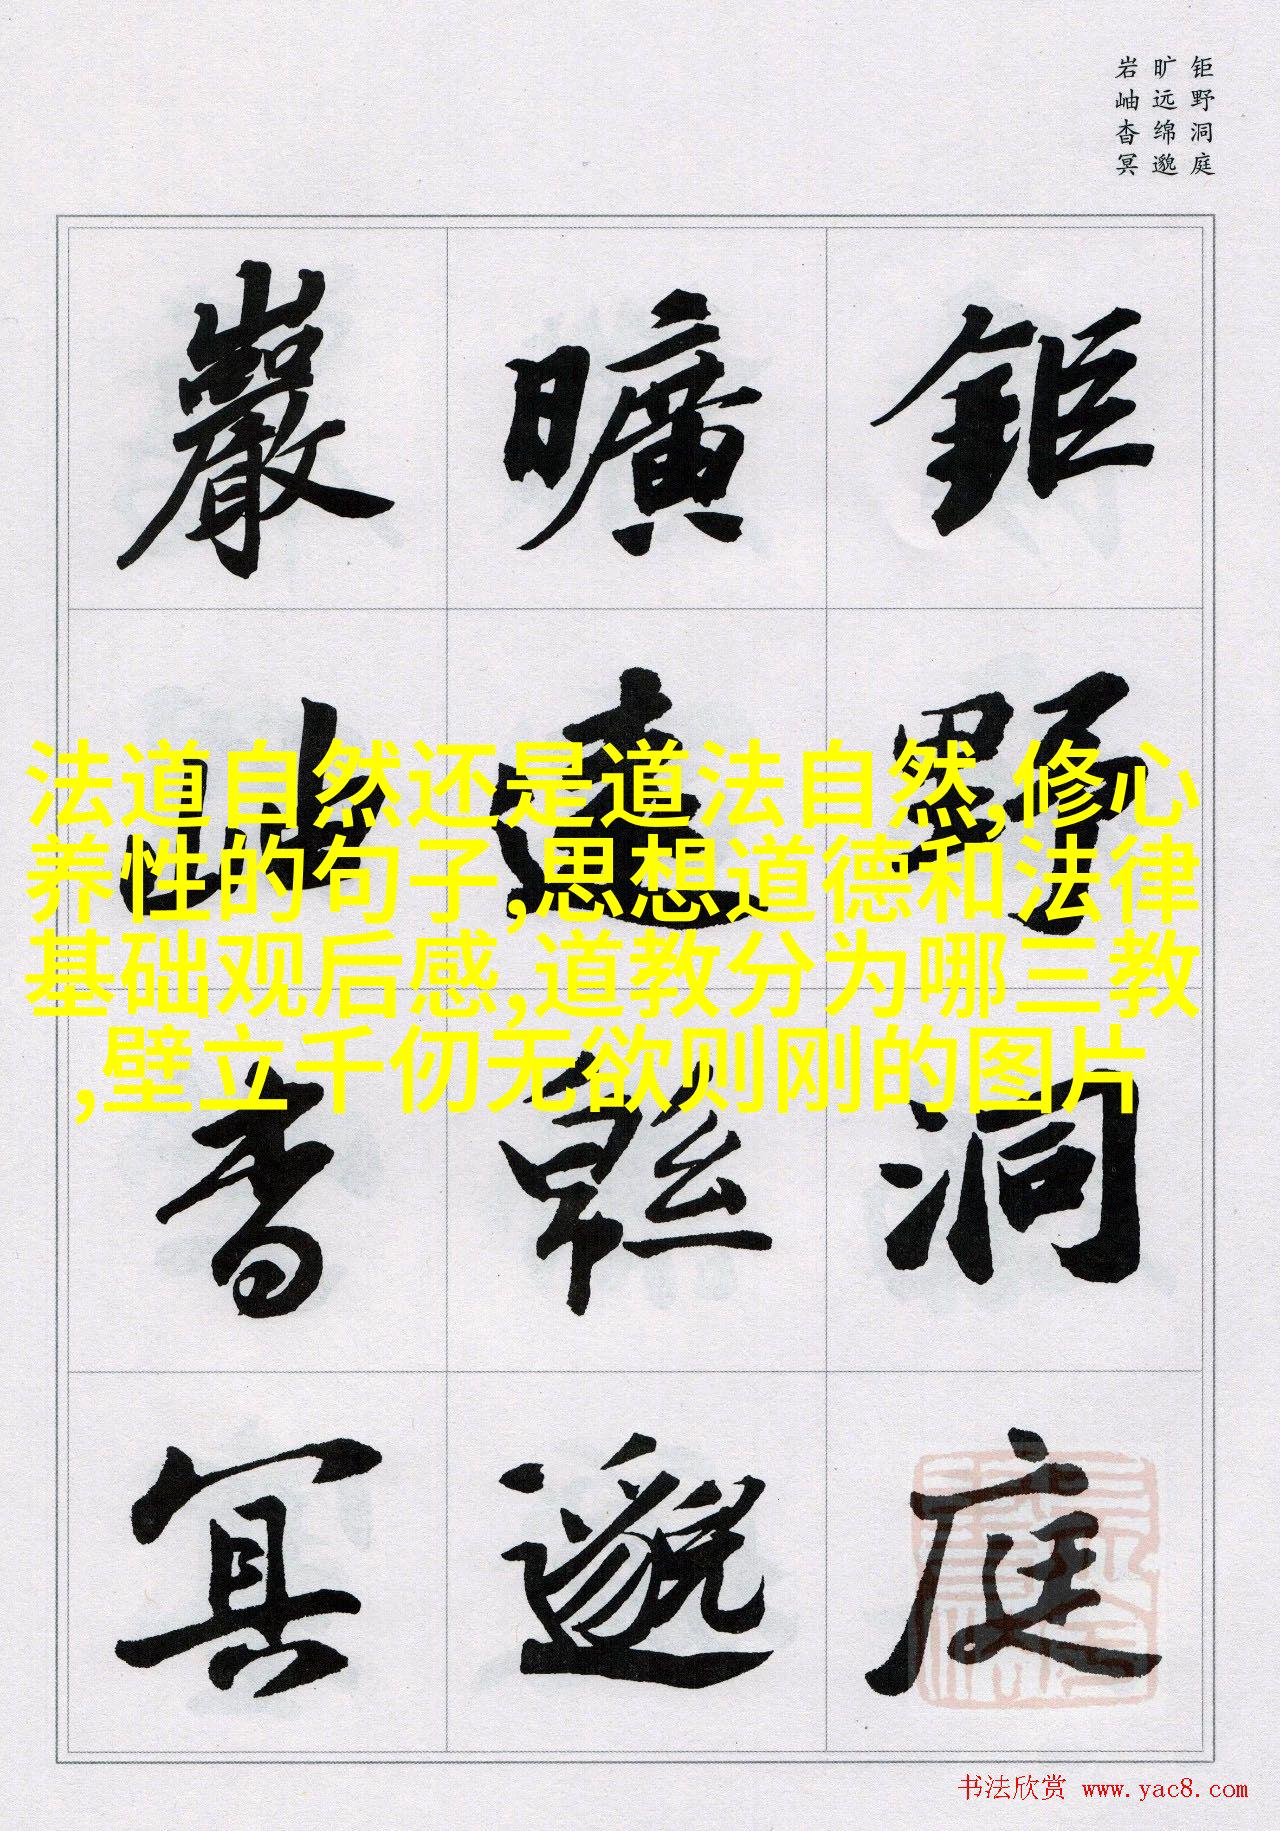 钜野洞庭
旷远绵邈
岩岫杳冥
鉅野洞庭
曠遠緜邈
巖岫杳冥
法道自然还是道法自然,修心
养性的句子,思想道德和法律
基础观后感,道教分为哪三教
,壁立千仞无欲则刚的图片
书法欣赏 www.yac8.com